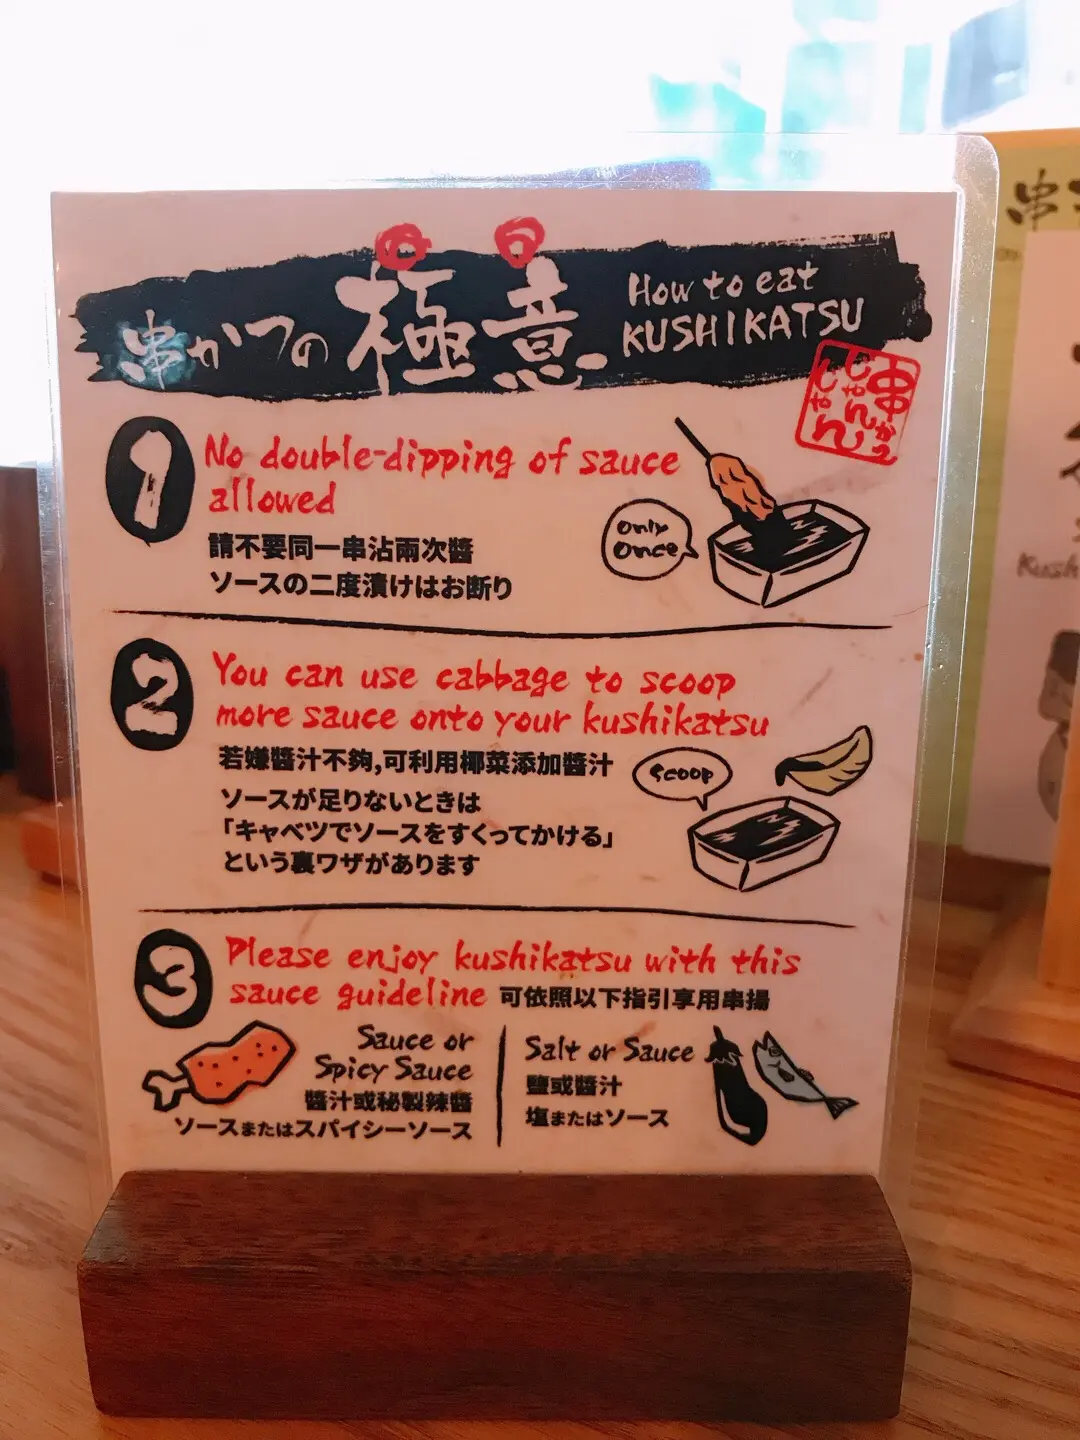 串かつの極意
How to eat
KUSHIKATSU
串かつ
じゃんじゃん
1
No double-dipping of sauce
allowed
請不要同一串沾兩次醬
ソースの二度漬けはお断り
Only
Once
2
You can use cabbage to scoop
more sauce onto your kushikatsu
若嫌醬汁不夠,可利用椰菜添加醬汁
ソースが足りないときは
「キャベツでソースをすくってかける」
という裏ワザがあります
Scoop
3
Please enjoy kushikatsu with this
sauce guideline 可依照以下指引享用串揚
Sauce or
Spicy Sauce
醬汁或秘製辣醬
ソースまたはスパイシーソース
Salt or Sauce
鹽或醬汁
塩またはソース
串
Kush